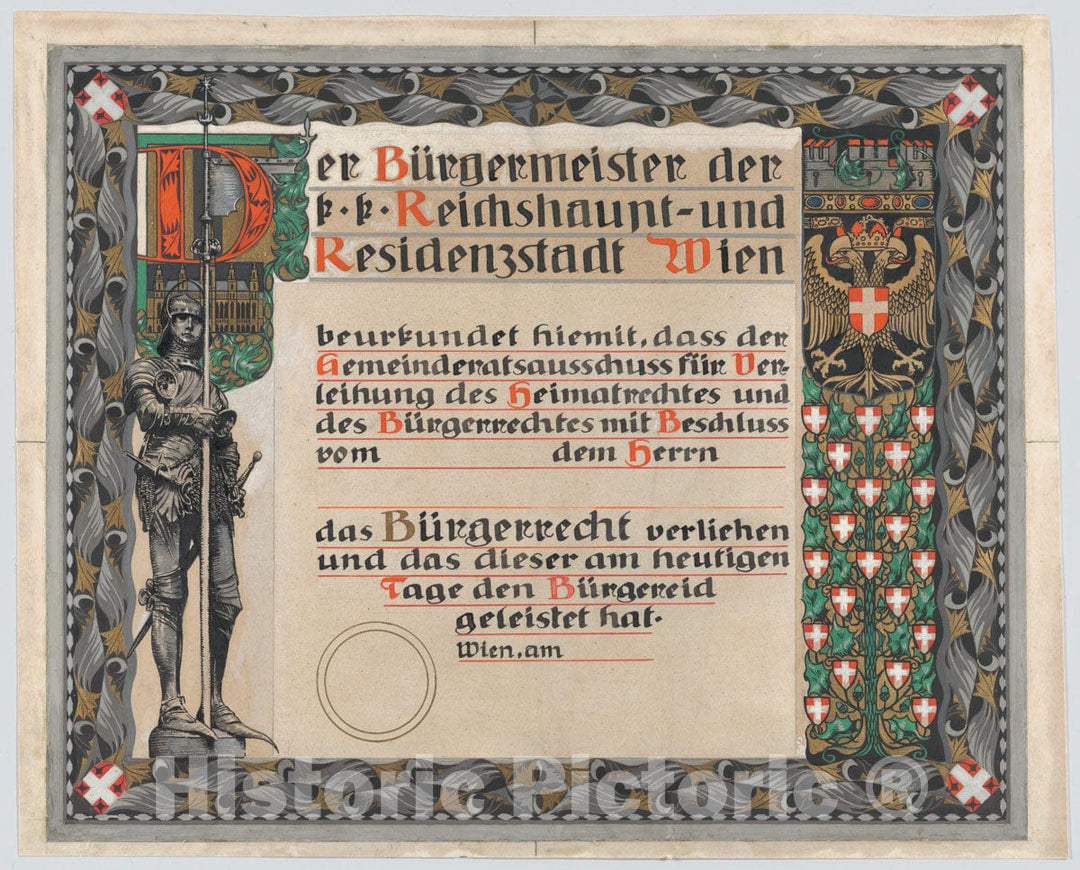 Der Bürgermeister der
k·k·Reichshaupt-und
Residenzstadt Wien
beurkundet hiemit, dass der
Gemeinderatsausschuss für Ver-
leihung des Heimatrechtes und
des Bürgerrechtes mit Beschluss
vom dem Herrn
das Bürgerrecht verliehen
und das dieser am heutigen
Tage den Bürgereid
geleistet hat.
Wien, am
Historic Pictoric ®